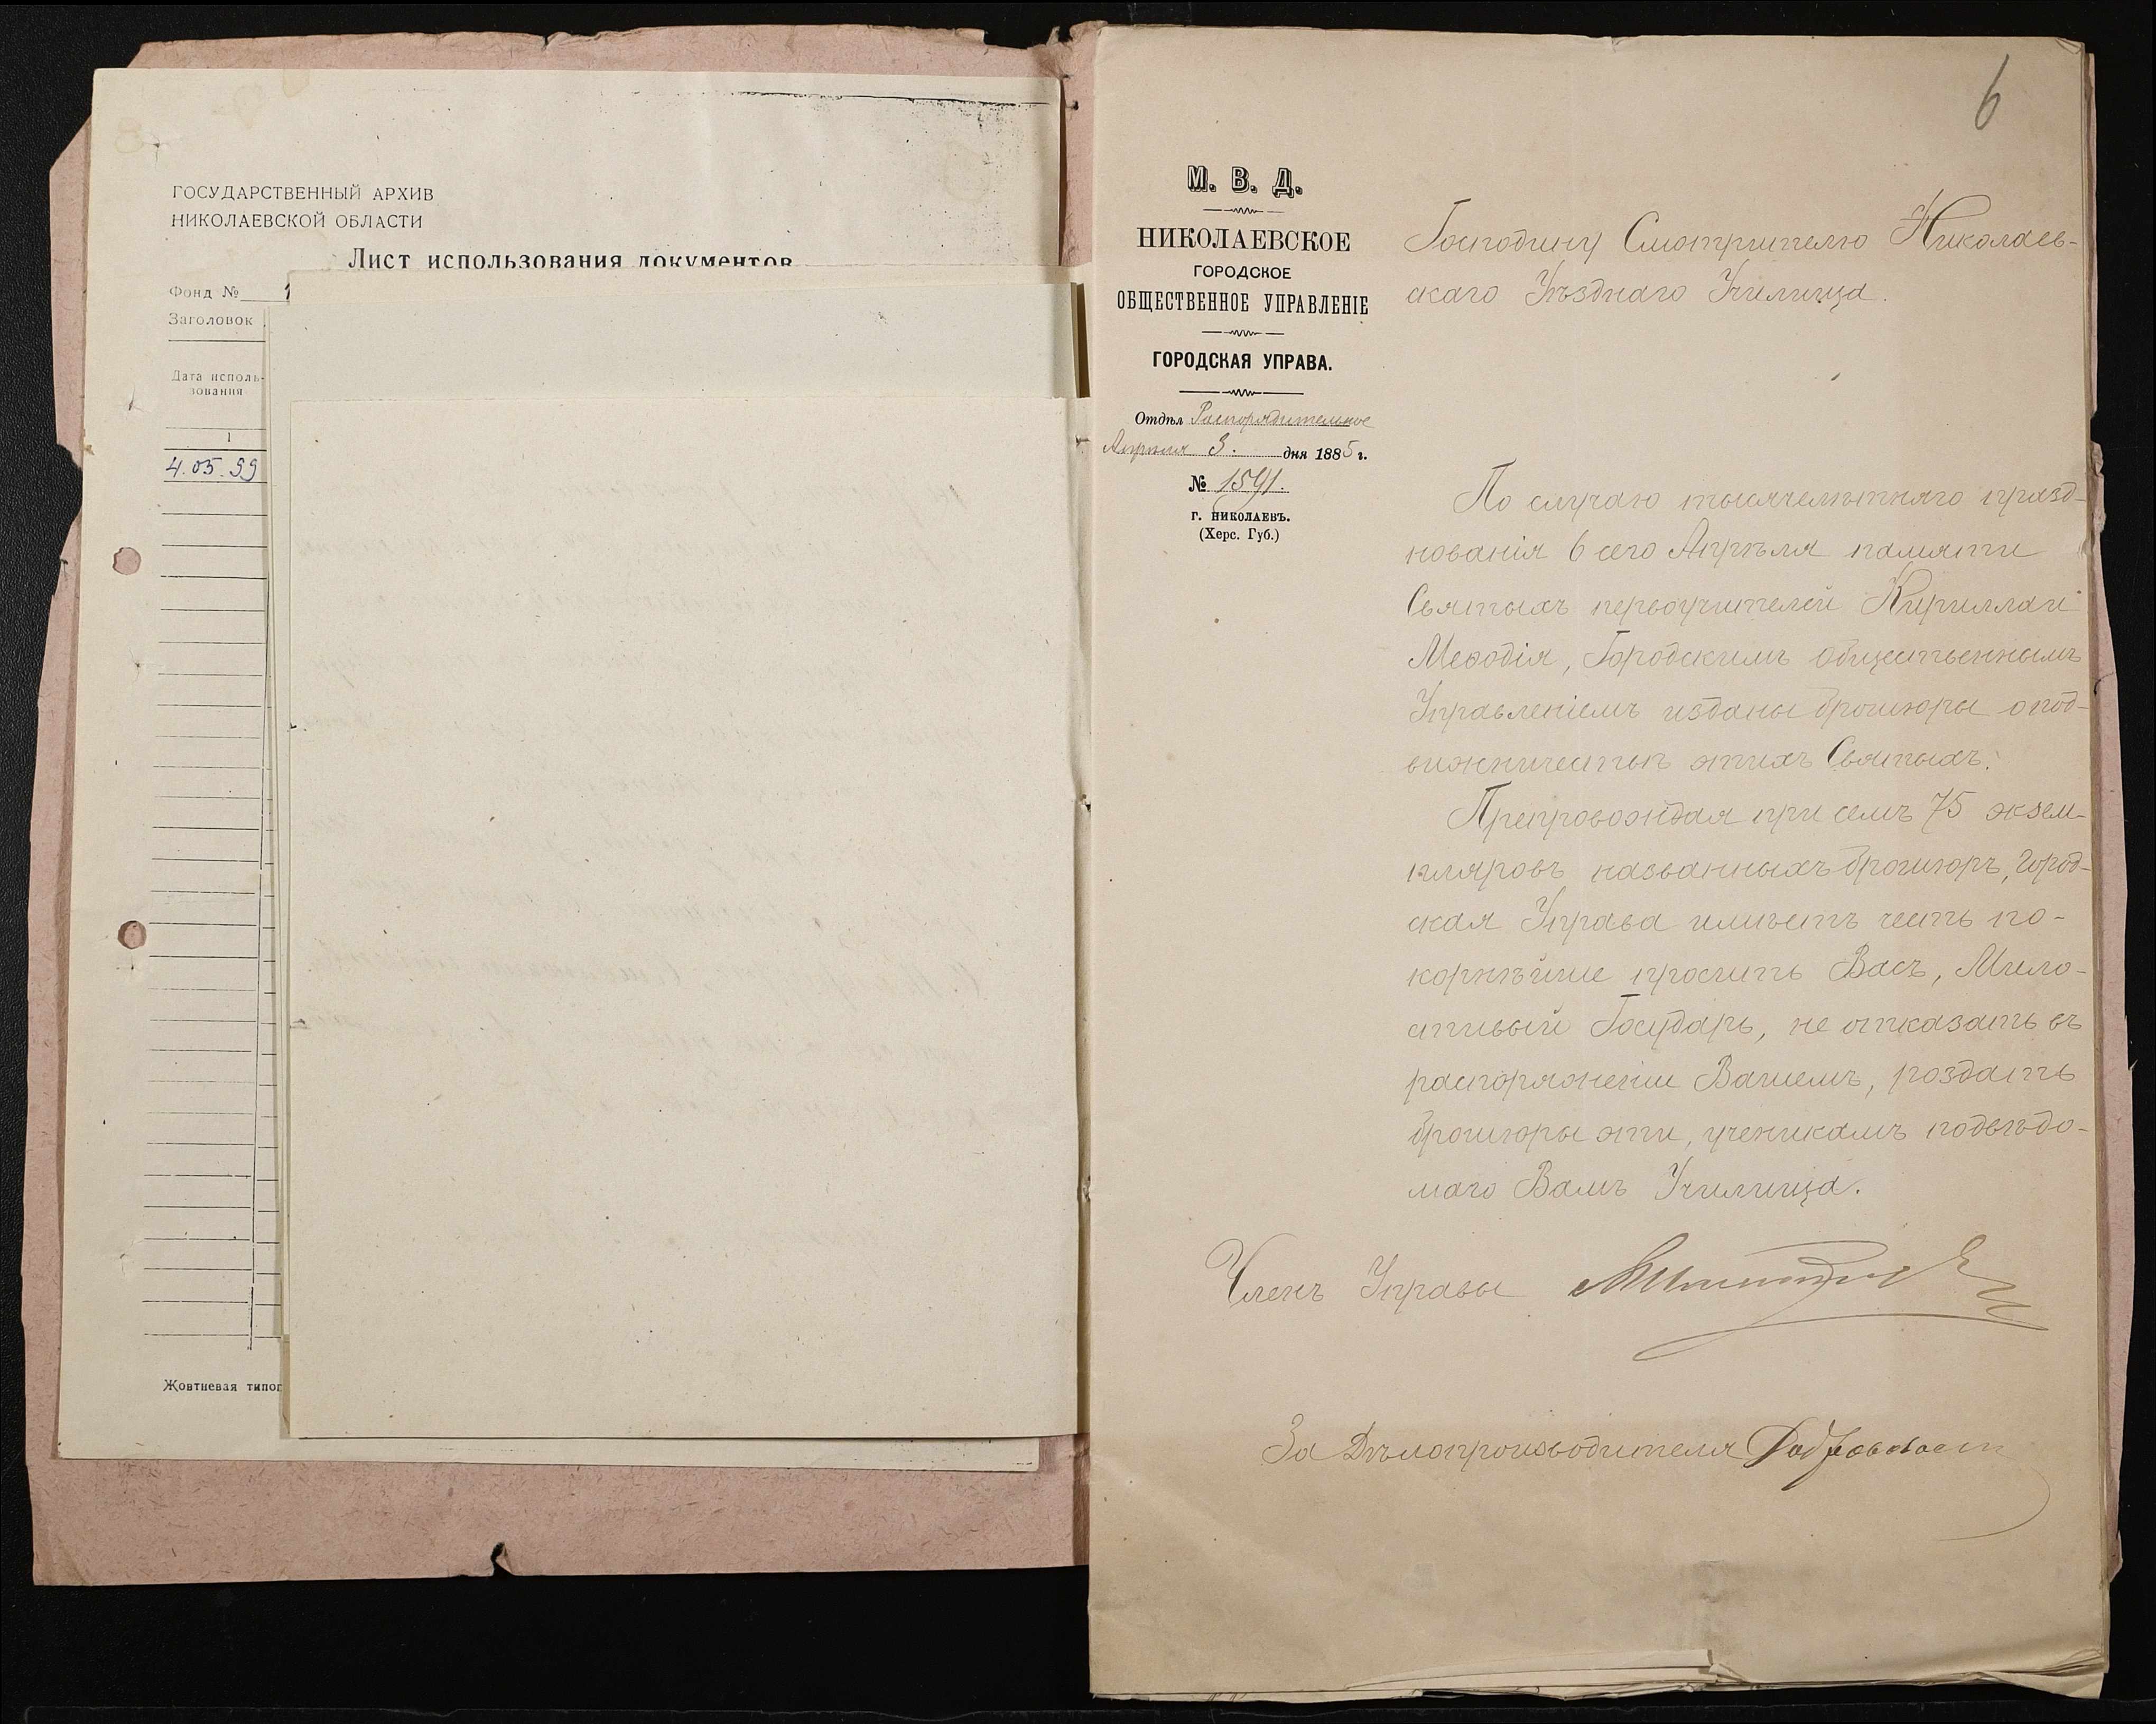 ГОСУДАРСТВЕННЫЙ АРХИВ
НИКОЛАЕВСКОЙ ОБЛАСТИ
Лист использования документов
Фонд №
Заголовок
Дата исполь-
зования
1
4.05.99
Жовтневая типог
6
М. В. Д.
НИКОЛАЕВСКОЕ
ГОРОДСКОЕ
ОБЩЕСТВЕННОЕ УПРАВЛЕНІЕ
ГОРОДСКАЯ УПРАВА.
Отдѣл Распорядительное
Апрѣля 3. дня 1885 г.
№ 1591.
г. НИКОЛАЕВЪ.
(Херс. Губ.)
Господину Смотрителю Николаев-
скаго Уѣзднаго Училища.
По случаю тысячелѣтняго празд-
нованія 6 сего Апрѣля памяти
Святыхъ первоучителей Кирилла и
Меѳодія, Городскимъ Общественнымъ
Управленіемъ изданы брошюры о под-
вижничествѣ этихъ Святыхъ.
Препровождая при семъ 75 экзем-
пляровъ названныхъ брошюръ, Город-
ская Управа имѣетъ честь по-
корнѣйше просить Васъ, Мило-
стивый Государь, не отказать въ
распоряженіи Вашемъ, роздать
брошюры эти, ученикамъ подвѣдо-
маго Вамъ Училища.
Членъ Управы
За Дѣлопроизводителя